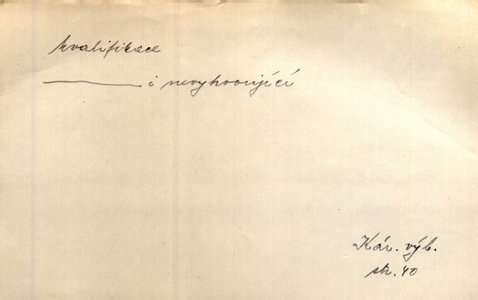 kvalifikace
——— i nevyhovující
Kár. výb.
str. 40